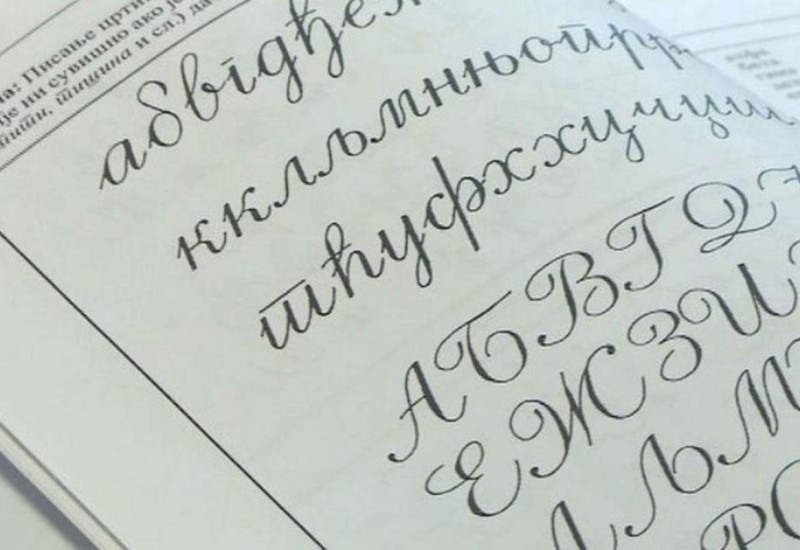 Писање црти
је ни сувишно ако је
тити, тишина и сл.) да
абвгдђеж
кклљмнњопрр
тћуфххцчџш
АБВГД
ЕЖЗИ
ЛЉМ
РС